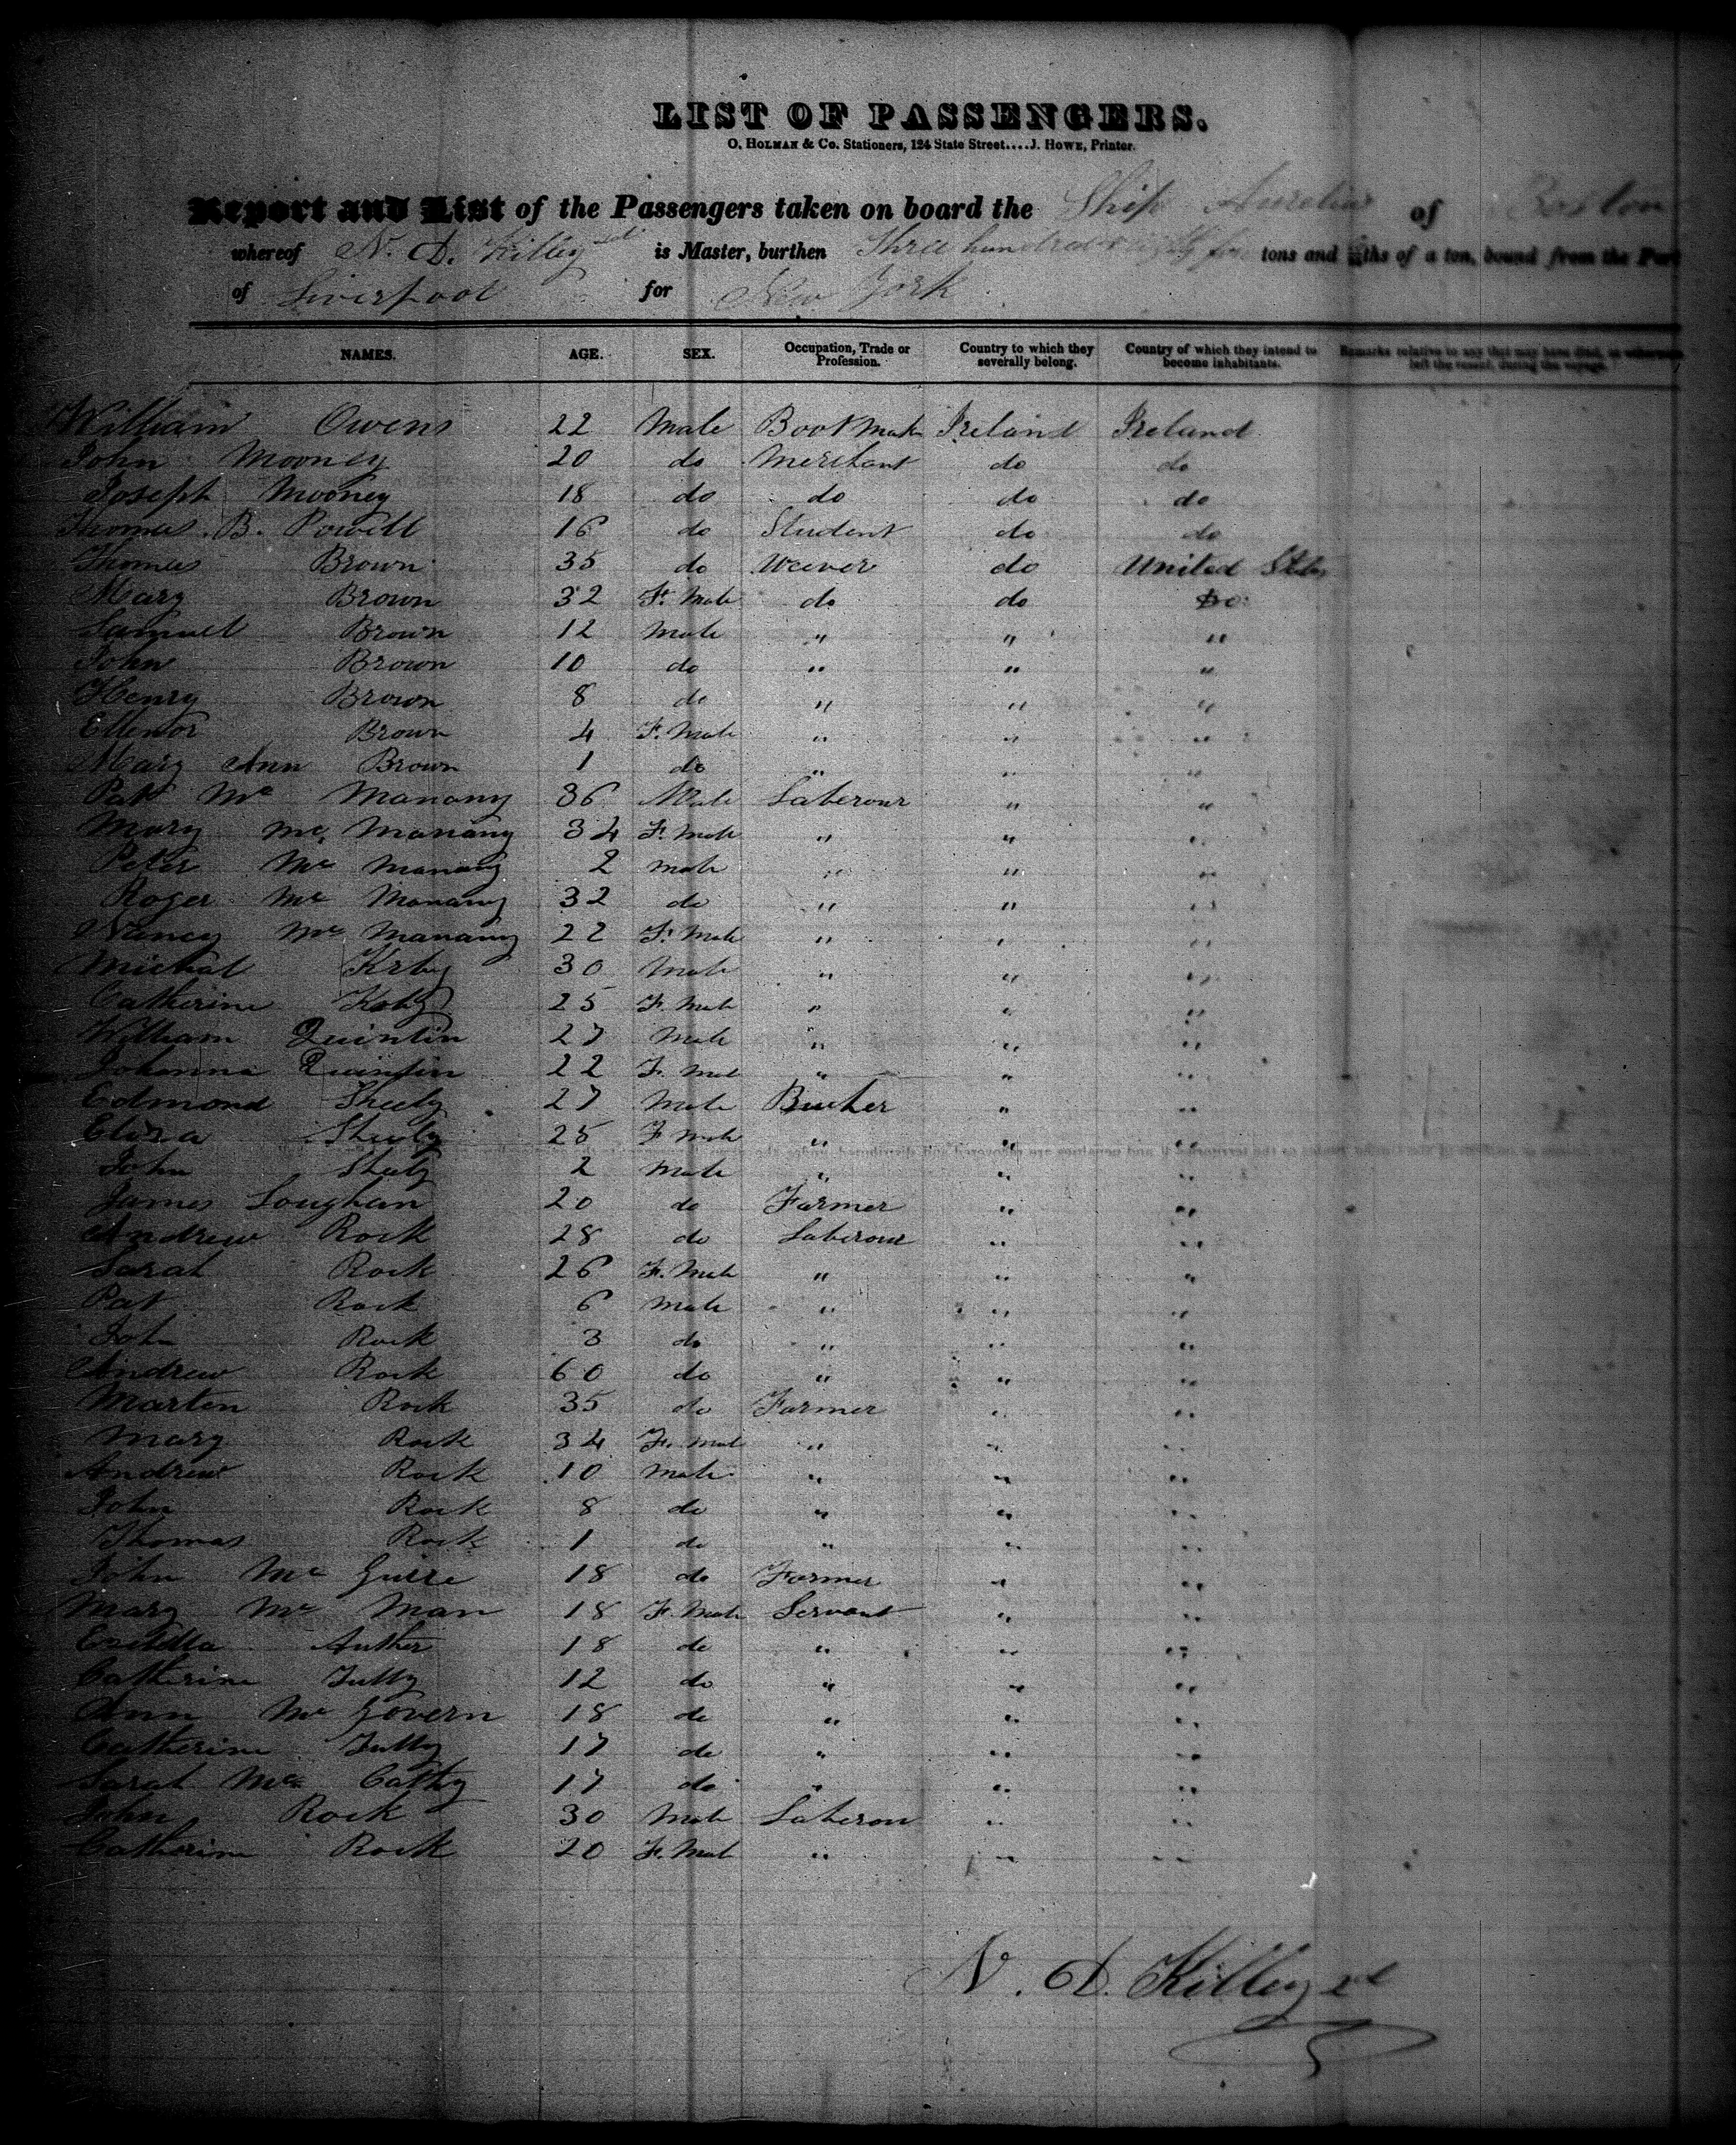 LIST OF PASSENGERS.
O. HOLMAN & Co. Stationers, 124 State Street....J. HOWE, Printer.
Report and List of the Passengers taken on board the Ship Aurelius of Boston
whereof N. D. Killey is Master, burthen Three hundred tons and ths of a ton, bound from the Port
of Liverpool for New York
NAMES. AGE. SEX. Occupation, Trade or Profession. Country to which they severally belong. Country of which they intend to become inhabitants. Remarks relative to any that may have died, or otherwise left the vessel, during the voyage.
William Owens 22 Male Boot Mak Ireland Ireland
John Mooney 20 do Merchant do do
Joseph Mooney 18 do do do do
Thomas B. Powell 16 do Student do do
Thomas Brown 35 do Weever do United Stats
Mary Brown 32 F. Male do do Do
Samuel Brown 12 Male " " "
John Brown 10 do " " "
Henry Brown 8 do " " "
Ellenor Brown 4 F. Male " " "
Mary Ann Brown 1 do " " "
Pat Mc Manany 36 Male Laberour " "
Mary Mc Manany 34 F. Male " " "
Peter Mc Manany 2 male " " "
Roger Mc Manany 32 do " " "
Nancy Mc Manany 22 F. Male " " "
Michal Krby 30 Male " " "
Catherine 25 F. Male " " "
William Quintin 27 Male " " "
Johanna Quintin 22 F. Male " " "
Edmond Sheely 27 Male Bucher " "
Eliza Sheely 25 F Male " " "
John Sheely 2 Male " " "
James Loughan 20 do Farmer " "
Andrew Rock 28 do Laberour " "
Sarah Rock 26 F. Male " " "
Pat Rock 6 Male " " "
John Rock 3 do " " "
Andrew Rock 60 do " " "
Marten Rock 35 do Farmer " "
Mary Rock 34 F. Male " " "
Andrew Rock 10 Male " " "
John Rock 8 do " " "
Thomas Rock 1 do " " "
John Mc Guire 18 do Farmer " "
Mary Mc Man 18 F. Male Servant " "
Auther 18 do " " "
Catherine Tully 12 do " " "
Ann Mc Govern 18 do " " "
Catherine Tully 17 do " " "
Sarah Mc Cathy 17 do " " "
John Rock 30 Male Laberour " "
Catherine Rock 20 F. Male " " "
N. D. Killey